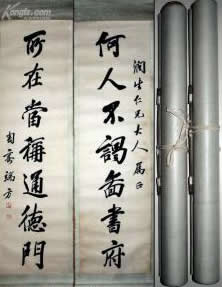 Kongfz.com
何人不謁圖書府
潤生仁兄大人屬正
所在當稱通德門
匋齋端方